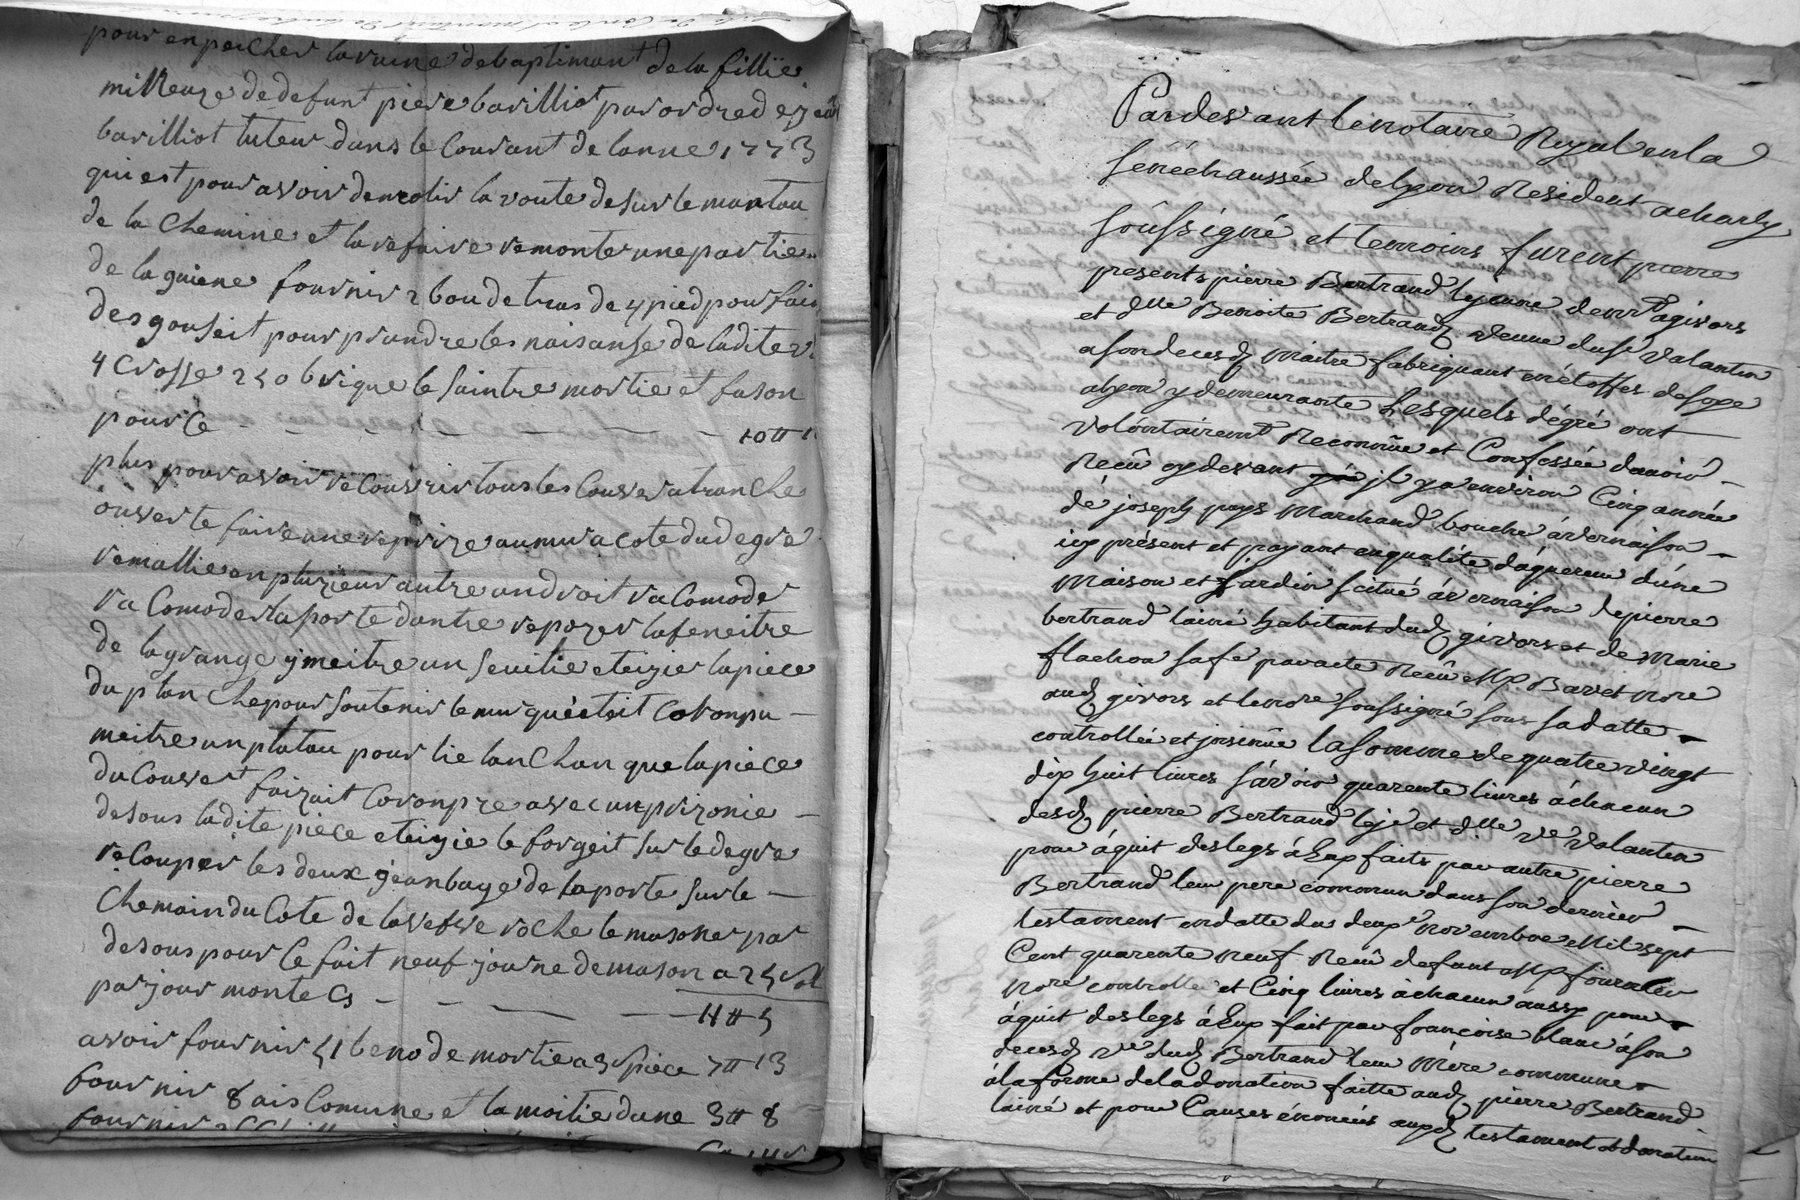 pour enpecher la ruine de baptimant de la fillie
milleuze de defunt piere barilliot par ordre de jean
barilliot tuteur dans le Courant de lanne 1773
qui est pour avoir demolir la voute desur le mantau
de la Chemine et la refaire remonter une partie
de la gaiene fournir 2 bou de tras de 4 pied pour fair
des gouseit pour prandre les naisanse de ladite
4 Crosse 250 brique le saintre mortie et fason
pour Ce 10 ₶
plus pour avoir recouvrir tous les Couver a tranche
ouverte faire une reprize au mur a cote du degre
remallie en pluzieur autre androit racomode
racomoder la porte dantre repozer la feneitre
de la grange y meitre un seuilie et eizie la piece
du plan Che pour soutenir le mur qui etoit Coronpu
meitre un platau pour lie lan Chan que la piece
du Couvert faizait Coronpre avec un prizonie
desous ladite piece et eizie le forgeit sur le degre
recouper les deux jeanbage de la porte sur le
Chemain du Cote de la vefve roche le masoner par
desous pour Ce fait neuf journe de mason a 25 sol
par jour monte Cy
11 ₶ 5
avoir fournir 51 beno de mortie a 3 s piece 7 ₶ 13
fournir 8 ais Comune et la moitie dune 3 ₶ 8
fournir
Pardevant le notaire Royal en la
sénéchaussée de lyon Resident a charly
soussigné et temoins furent pierre
presents pierre Bertrand le jeune demt a givors
et dlle Benoite Bertrand veuve du sr valantin
a son deces maitre fabriquant en étoffes de soye
a lyon y demeurante Lesquels dégré ont
volontairemt Reconnüe et Confessée davoir
Recû cy devant jl y a environ Cinq année
dé joseph pays Marchand bouche á vernaison
icy présent et payant en qualité dáquereur dúne
Maison et jardin scitué á vernaison de pierre
bertrand lainé habitant dud givors et de Marie
flachon sa fe par acte Recû Me Barret nore
aud givors et le nore soussigné sous sa datte
controllée et jnsinüe la somme de quatre vingt
dix huit livres sávoir quarente livres á chacun
desd pierre Bertrand le je et dlle ve valantin
pour áquit des legs á Eux faits par autre pierre
Bertrand leur pere commun dans son dernier
testament en datte du deux novembre Mil sept
Cent quarente neuf Recû defunt Me fournier
nore controllé et Cinq livres á chacun aussy pour
áquit des legs á Eux fait par francoise blanc á son
deces ve dud Bertrand leur Mere commune
á la forme de la donation faitte aud pierre Bertrand
lainé et pour Causes énoncées auxd testament et donation